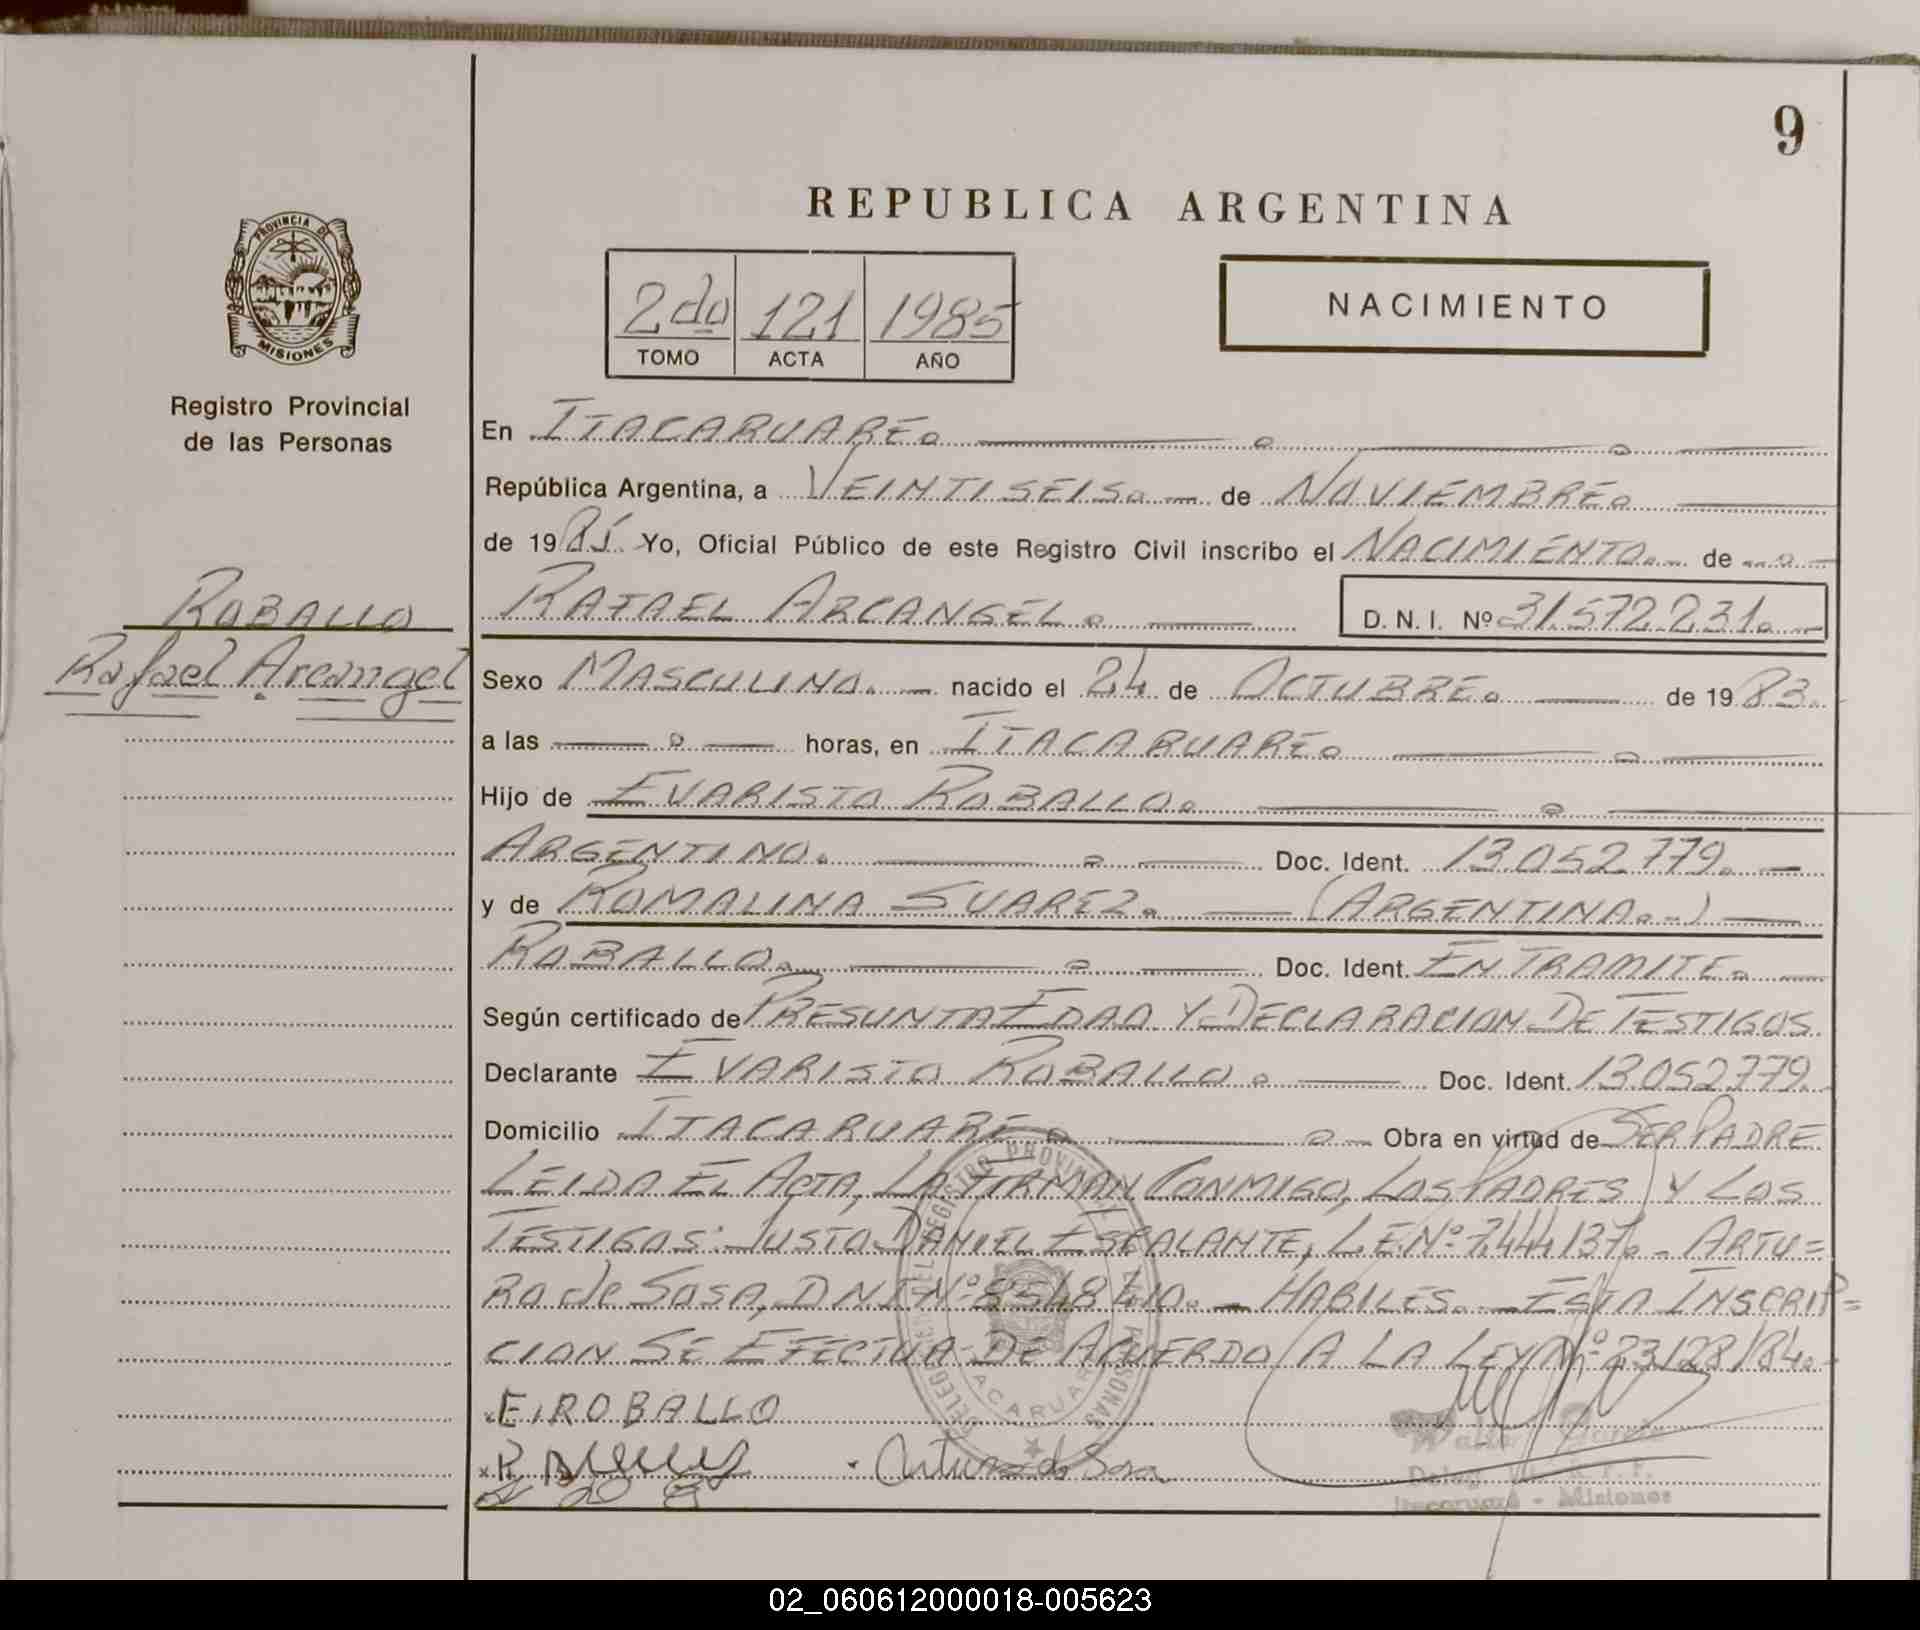 9
REPUBLICA ARGENTINA
2do 121 1985
TOMO ACTA AÑO
NACIMIENTO
PROVINCIA DE
MISIONES
Registro Provincial
de las Personas
ROBALLO
Rafael Arcangel
En ITACARUARE.
República Argentina, a VEINTISEIS. de NOVIEMBRE.
de 1985 Yo, Oficial Público de este Registro Civil inscribo el NACIMIENTO. de
RAFAEL ARCANGEL. D. N. I. Nº 31.572.231.
Sexo MASCULINO. nacido el 24 de OCTUBRE. de 1983.
a las horas, en ITACARUARE.
Hijo de EVARISTO ROBALLO.
ARGENTINO. Doc. Ident. 13.052.779.
y de ROMALINA SUAREZ. (ARGENTINA.)
ROBALLO. Doc. Ident. EN TRAMITE.
Según certificado de PRESUNTA EDAD Y DECLARACION DE TESTIGOS.
Declarante EVARISTO ROBALLO. Doc. Ident. 13.052.779.
Domicilio ITACARUARE. Obra en virtud de SER PADRE
LEIDA EL ACTA, LA FIRMAN CONMIGO, LOS PADRES Y LOS
TESTIGOS: JUSTO DANIEL ESCALANTE, L.E.Nº 7.444.137. - ARTU=
RO de SOSA, D N I Nº 8.548.410. - HABILES. - ESTA INSCRIP=
CION SE EFECTUA DE ACUERDO A LA LEY Nº 23128/84. -
E. ROBALLO
Arturo de Sosa
Itacaruaré - Misiones
02_060612000018-005623